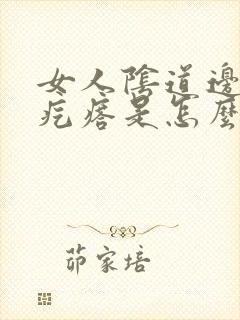 女人陰道邊
疙瘩是怎麼
茆家培